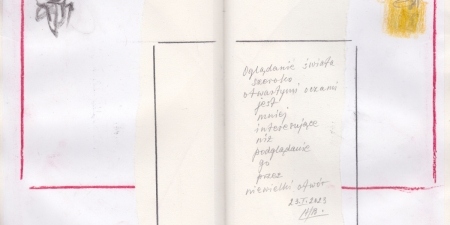 Oglądanie świata
szeroko
otwartymi oczami
jest
mniej
interesujące
niż
podglądanie
go
przez
niewielki otwór...
23.I.2023